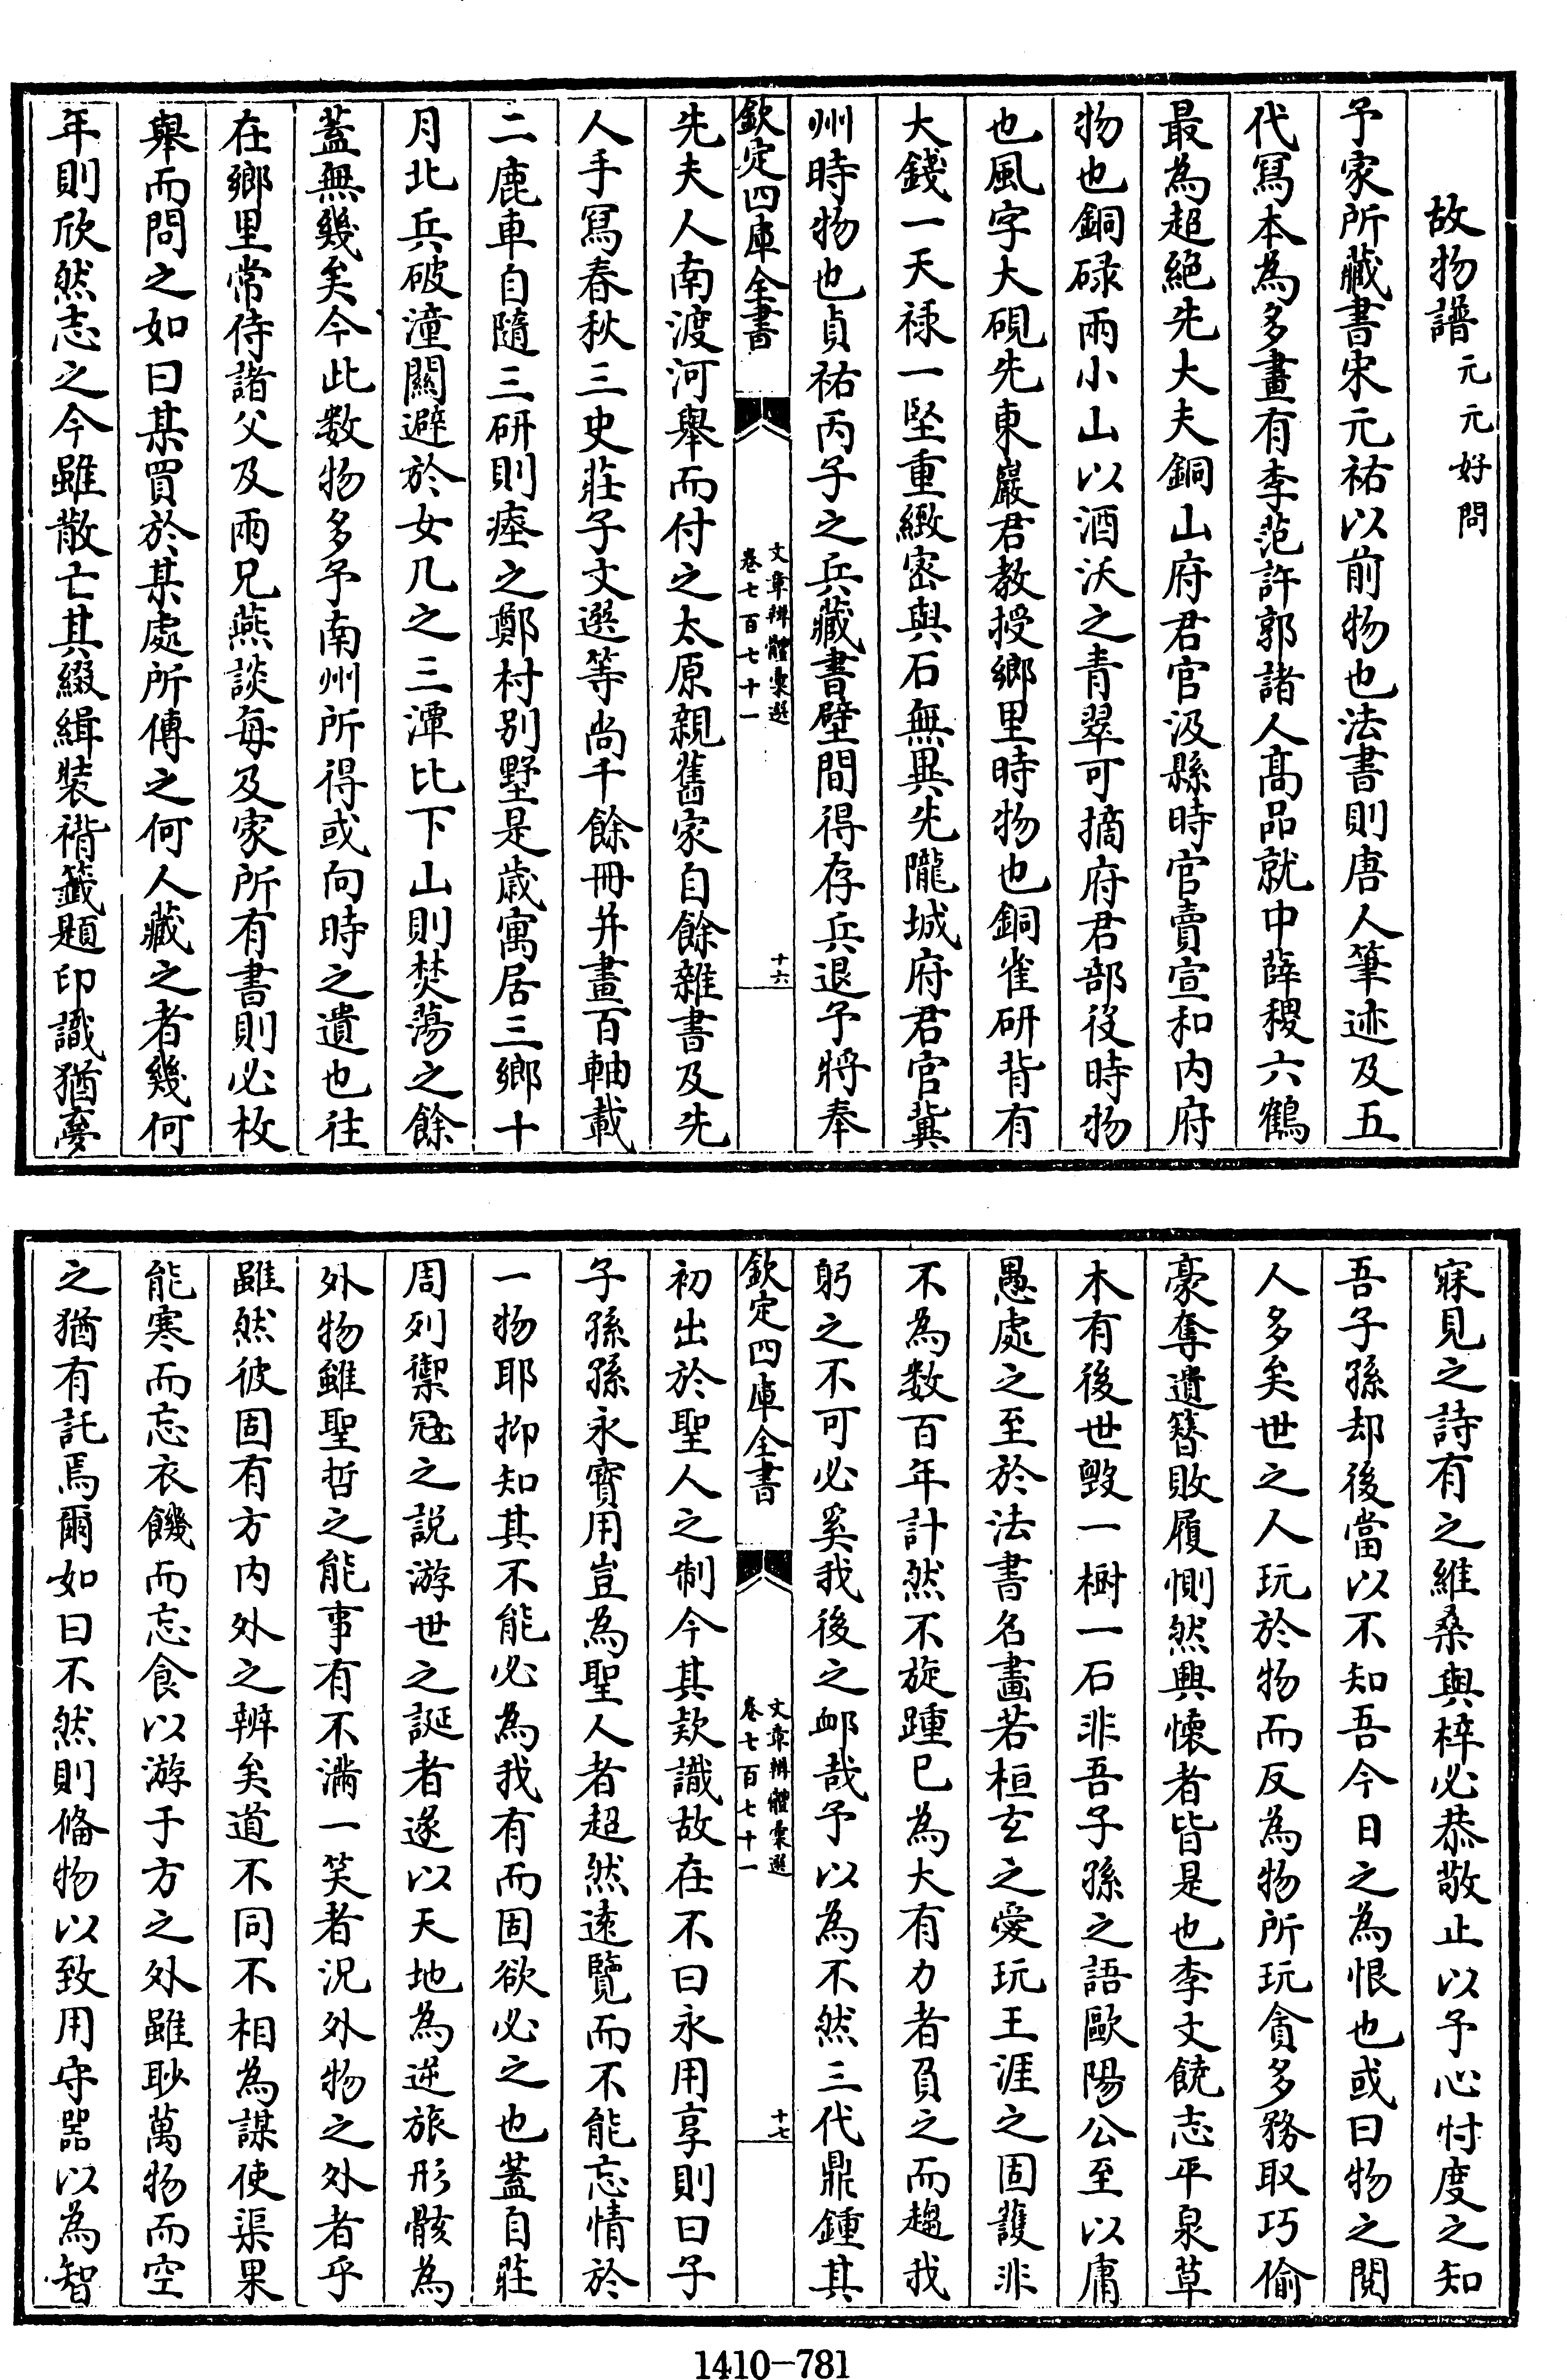 故物譜元元好問
予家所藏書宋元祐以前物也法書則唐人筆迹及五
代冩本為多畫有李范許郭諸人髙品就中薛稷六鶴
最為超絶先大夫銅山府君官汲縣時官賣宣和内府
物也銅碌兩小山以酒沃之青翠可摘府君部役時物
也風字大硯先東巖君教授鄉里時物也銅雀研背有
大錢一天禄一堅重緻密與石無異先隴城府君官冀
州時物也貞祐丙子之兵藏書壁間得存兵退予將奉
欽定四庫全書
文章辨體彙選
卷七百七十一
十六
先夫人南渡河舉而付之太原親舊家自餘雜書及先
人手寫春秋三史莊子文選等尚千餘冊并畫百軸載
二鹿車自隨三研則瘞之鄭村别墅是歳寓居三鄉十
月北兵破潼關避於女几之三潭比下山則焚蕩之餘
蓋無幾矣今此数物多予南州所得或向時之遺也往
在鄉里常侍諸父及兩兄燕談每及家所有書則必枚
舉而問之如曰某買於某處所傳之何人藏之者幾何
年則欣然志之今雖散亡其綴緝裝褙籤題印識猶夢
寐見之詩有之維桑與梓必恭敬止以予心忖度之知
吾子孫却後當以不知吾今日之為恨也或曰物之閱
人多矣世之人玩於物而反為物所玩貪多務取巧偷
豪奪遺簪敗履惻然興懐者皆是也李文饒志平泉草
木有後世毁一樹一石非吾子孫之語歐陽公至以庸
愚處之至於法書名畫若桓玄之愛玩王涯之固護非
不為数百年計然不旋踵已為大有力者負之而趨我
躬之不可必奚我後之卹哉予以為不然三代鼎鍾其
欽定四庫全書
文章辨體彙選
卷七百七十一
十七
初出於聖人之制今其欵識故在不曰永用享則曰子
子孫孫永寳用豈為聖人者超然逺覽而不能忘情於
一物耶抑知其不能必為我有而固欲必之也蓋自莊
周列禦冦之説游世之誕者遂以天地為逆旅形骸為
外物雖聖哲之能事有不滿一笑者況外物之外者乎
雖然彼固有方内外之辨矣道不同不相為謀使渠果
能寒而忘衣饑而忘食以游于方之外雖眇萬物而空
之猶有託焉爾如曰不然則備物以致用守器以為智
1410-781